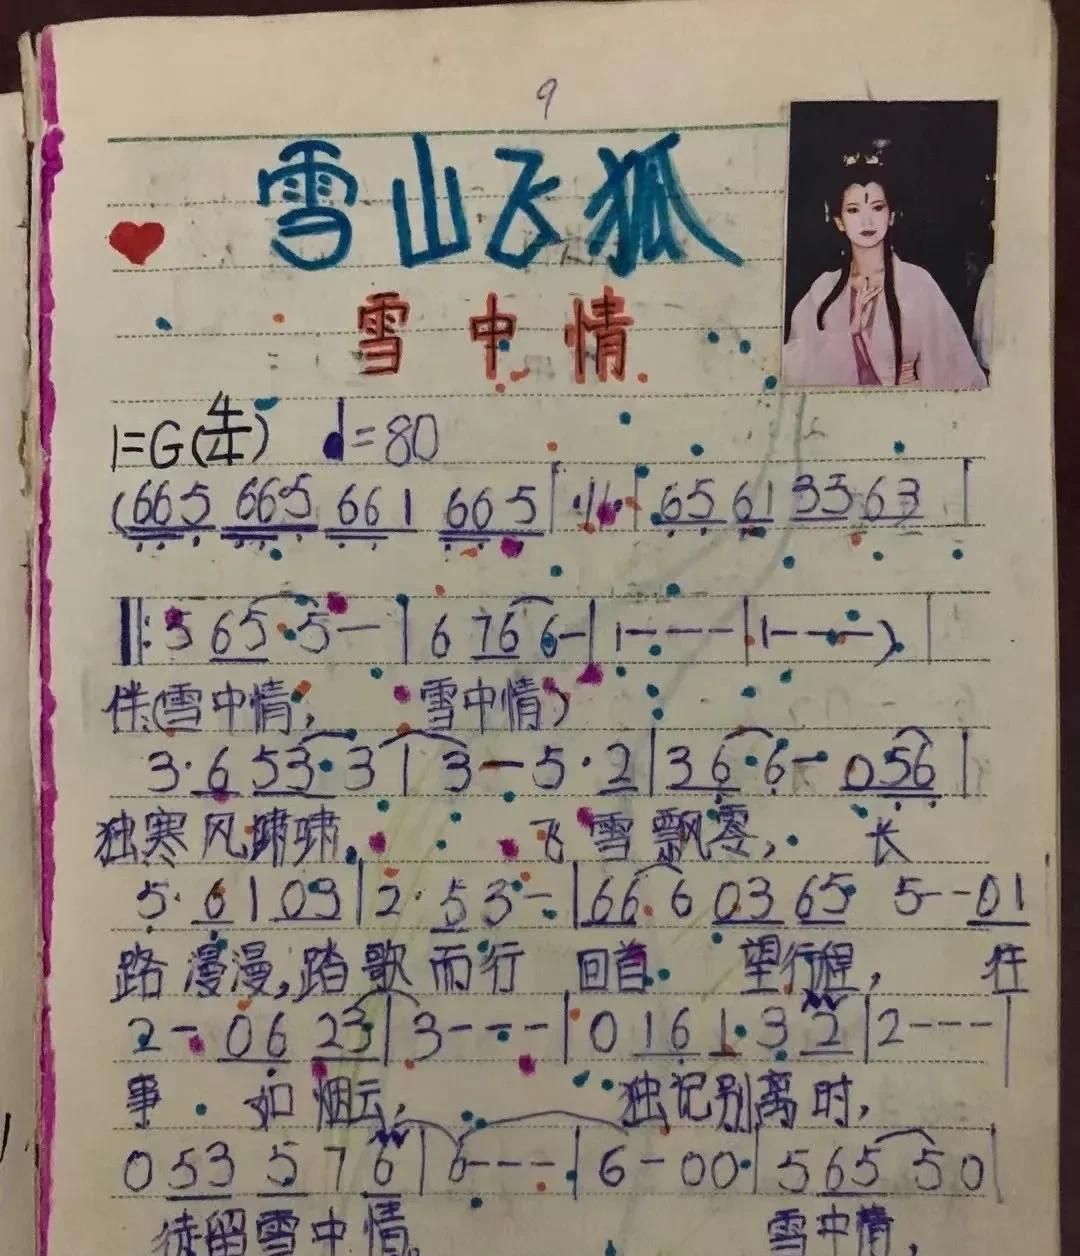 9
雪山飞狐
雪中情
1=G(4/4) ♩=80
(665 665 661 665 | ·//· | 65 61 33 63 |
‖: 5 65·5— | 6 76 6— | 1---- | 1----) |
伴(雪中情, 雪中情)
3·6 53·3 | 3—5·2 | 36·6— 056 |
独寒风啸啸, 飞雪飘零, 长
5·6 1 03 | 2·53- | 66·6 03 65 5--01
路漫漫,踏歌而行 回首 望行程, 往
2— 06 23 | 3--- | 0 16 1·3 2 | 2---
事 如烟云, 独记别离时,
0 53 5 7 6 | 6--- | 6-00 | 5 65 50
徒留雪中情 雪中情,